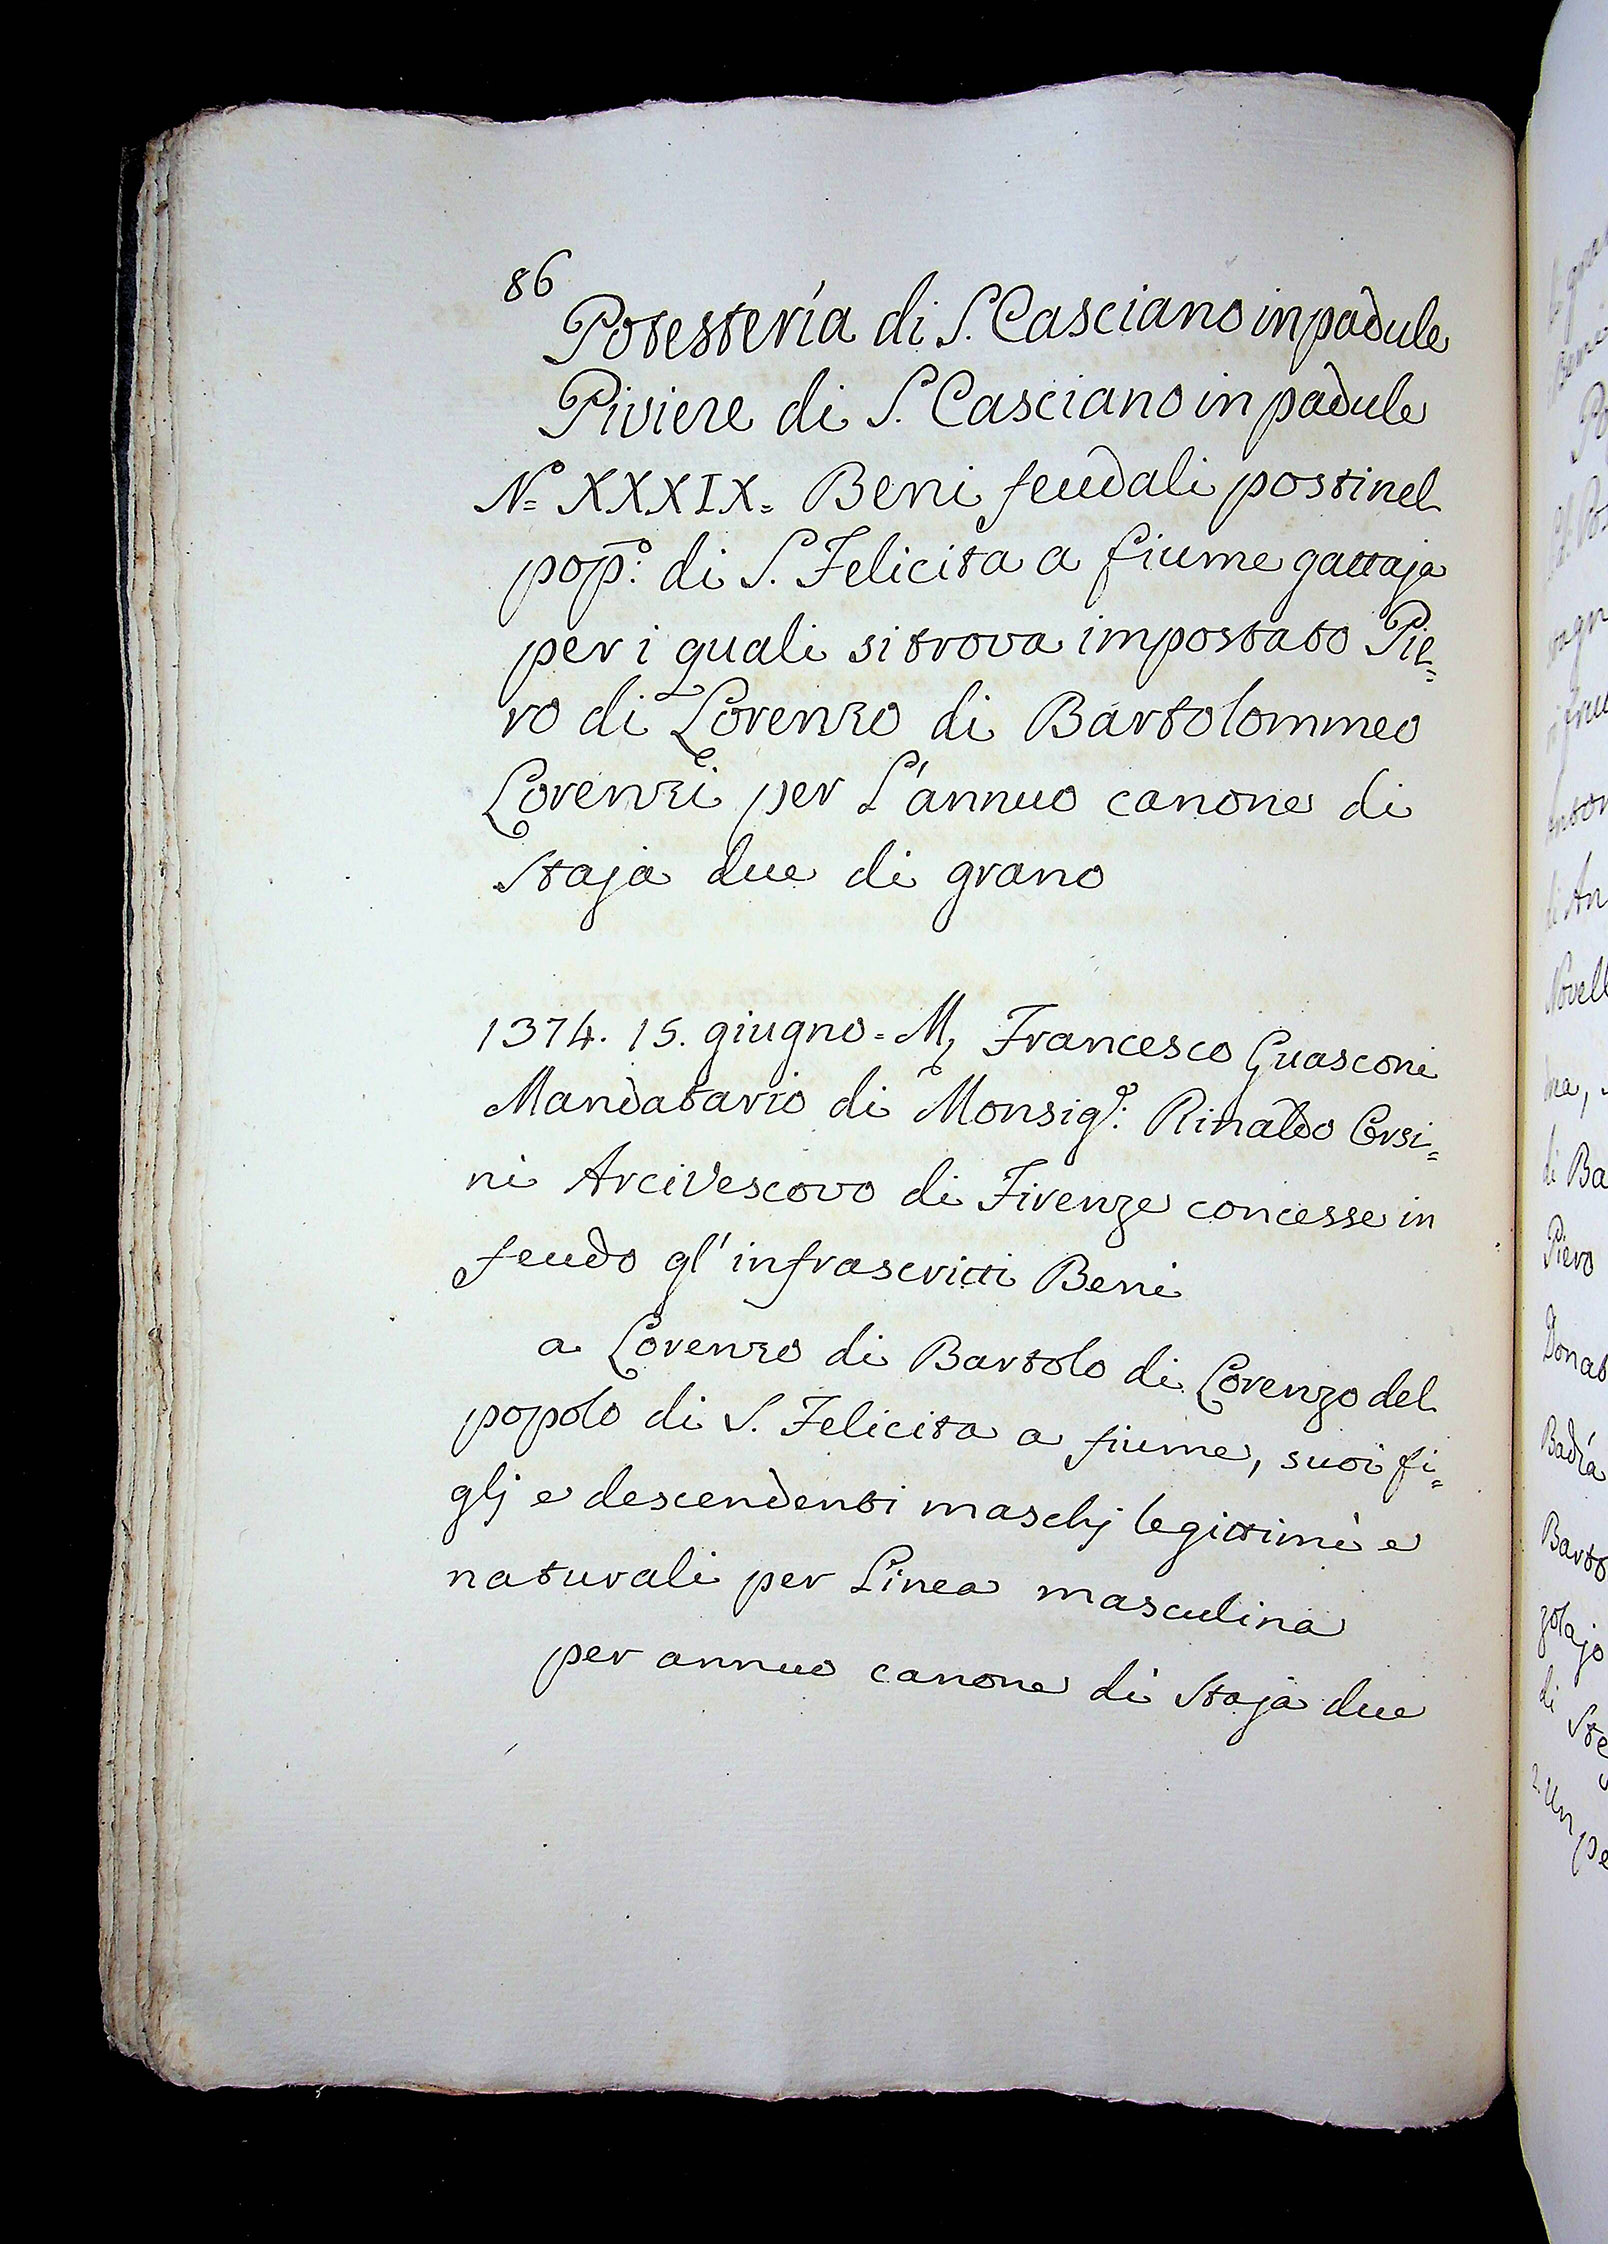 86
Potesterìa di S. Casciano in padule
Piviere di S. Casciano in padule
No= XXXIX= Beni feudali posti nel
popo: di S. Felicita a fiume gattaja
per i quali si trova impostato Pie=
ro di Lorenzo di Bartolommeo
Lorenzi per L'annuo canone di
Staja due di grano
1374. 15. giugno = M, Francesco Guasconi
Mandatario di Monsige: Rinaldo Orsi=
ni ArciVescovo di Firenze concesse in
feudo gl' infrascritti Beni
a Lorenzo di Bartolo di Lorenzo del
popolo di S. Felicita a fiume, suoi fi=
glj e descendenti maschj legittimi e
naturali per Linea masculina
per annuo canone di Staja due
Piero
Donat
Badìa
Barto
zolajo
di Ste
2. Un pe